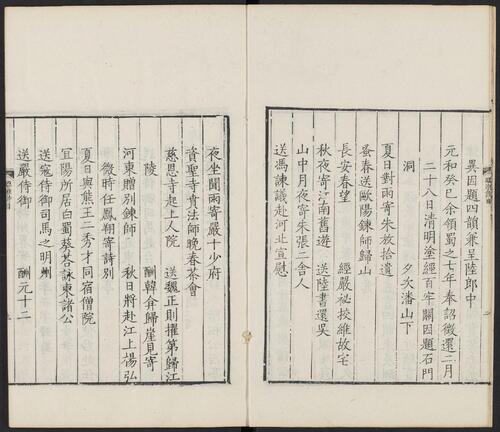 異因題四韻兼呈陸郎中
元和癸巳余領蜀之七年奉詔徵還二月
二十八日清明塗經百牢關因題石門
洞　夕次潘山下
夏日對雨寄朱放拾遺
蚤春送歐陽鍊師歸山
長安春望　經嚴祕挍維故宅
秋夜寄江南舊遊　送陸書還吳
山中月夜寄朱張二舍人
送馮諫議赴河北宣慰
夜坐聞雨寄嚴十少府
資聖寺賁法師晚春茶會
慈恩寺起上人院　送魏正則擢第歸江
陵　酬韓弇歸崖見寄
河東贈別鍊師　秋日將赴江上楊弘
微時任鳳翔寄詩別
夏日與熊王二秀才同宿僧院
宜陽所居白蜀葵荅詠柬諸公
送寇侍御司馬之明州
送嚴侍御　酬元十二